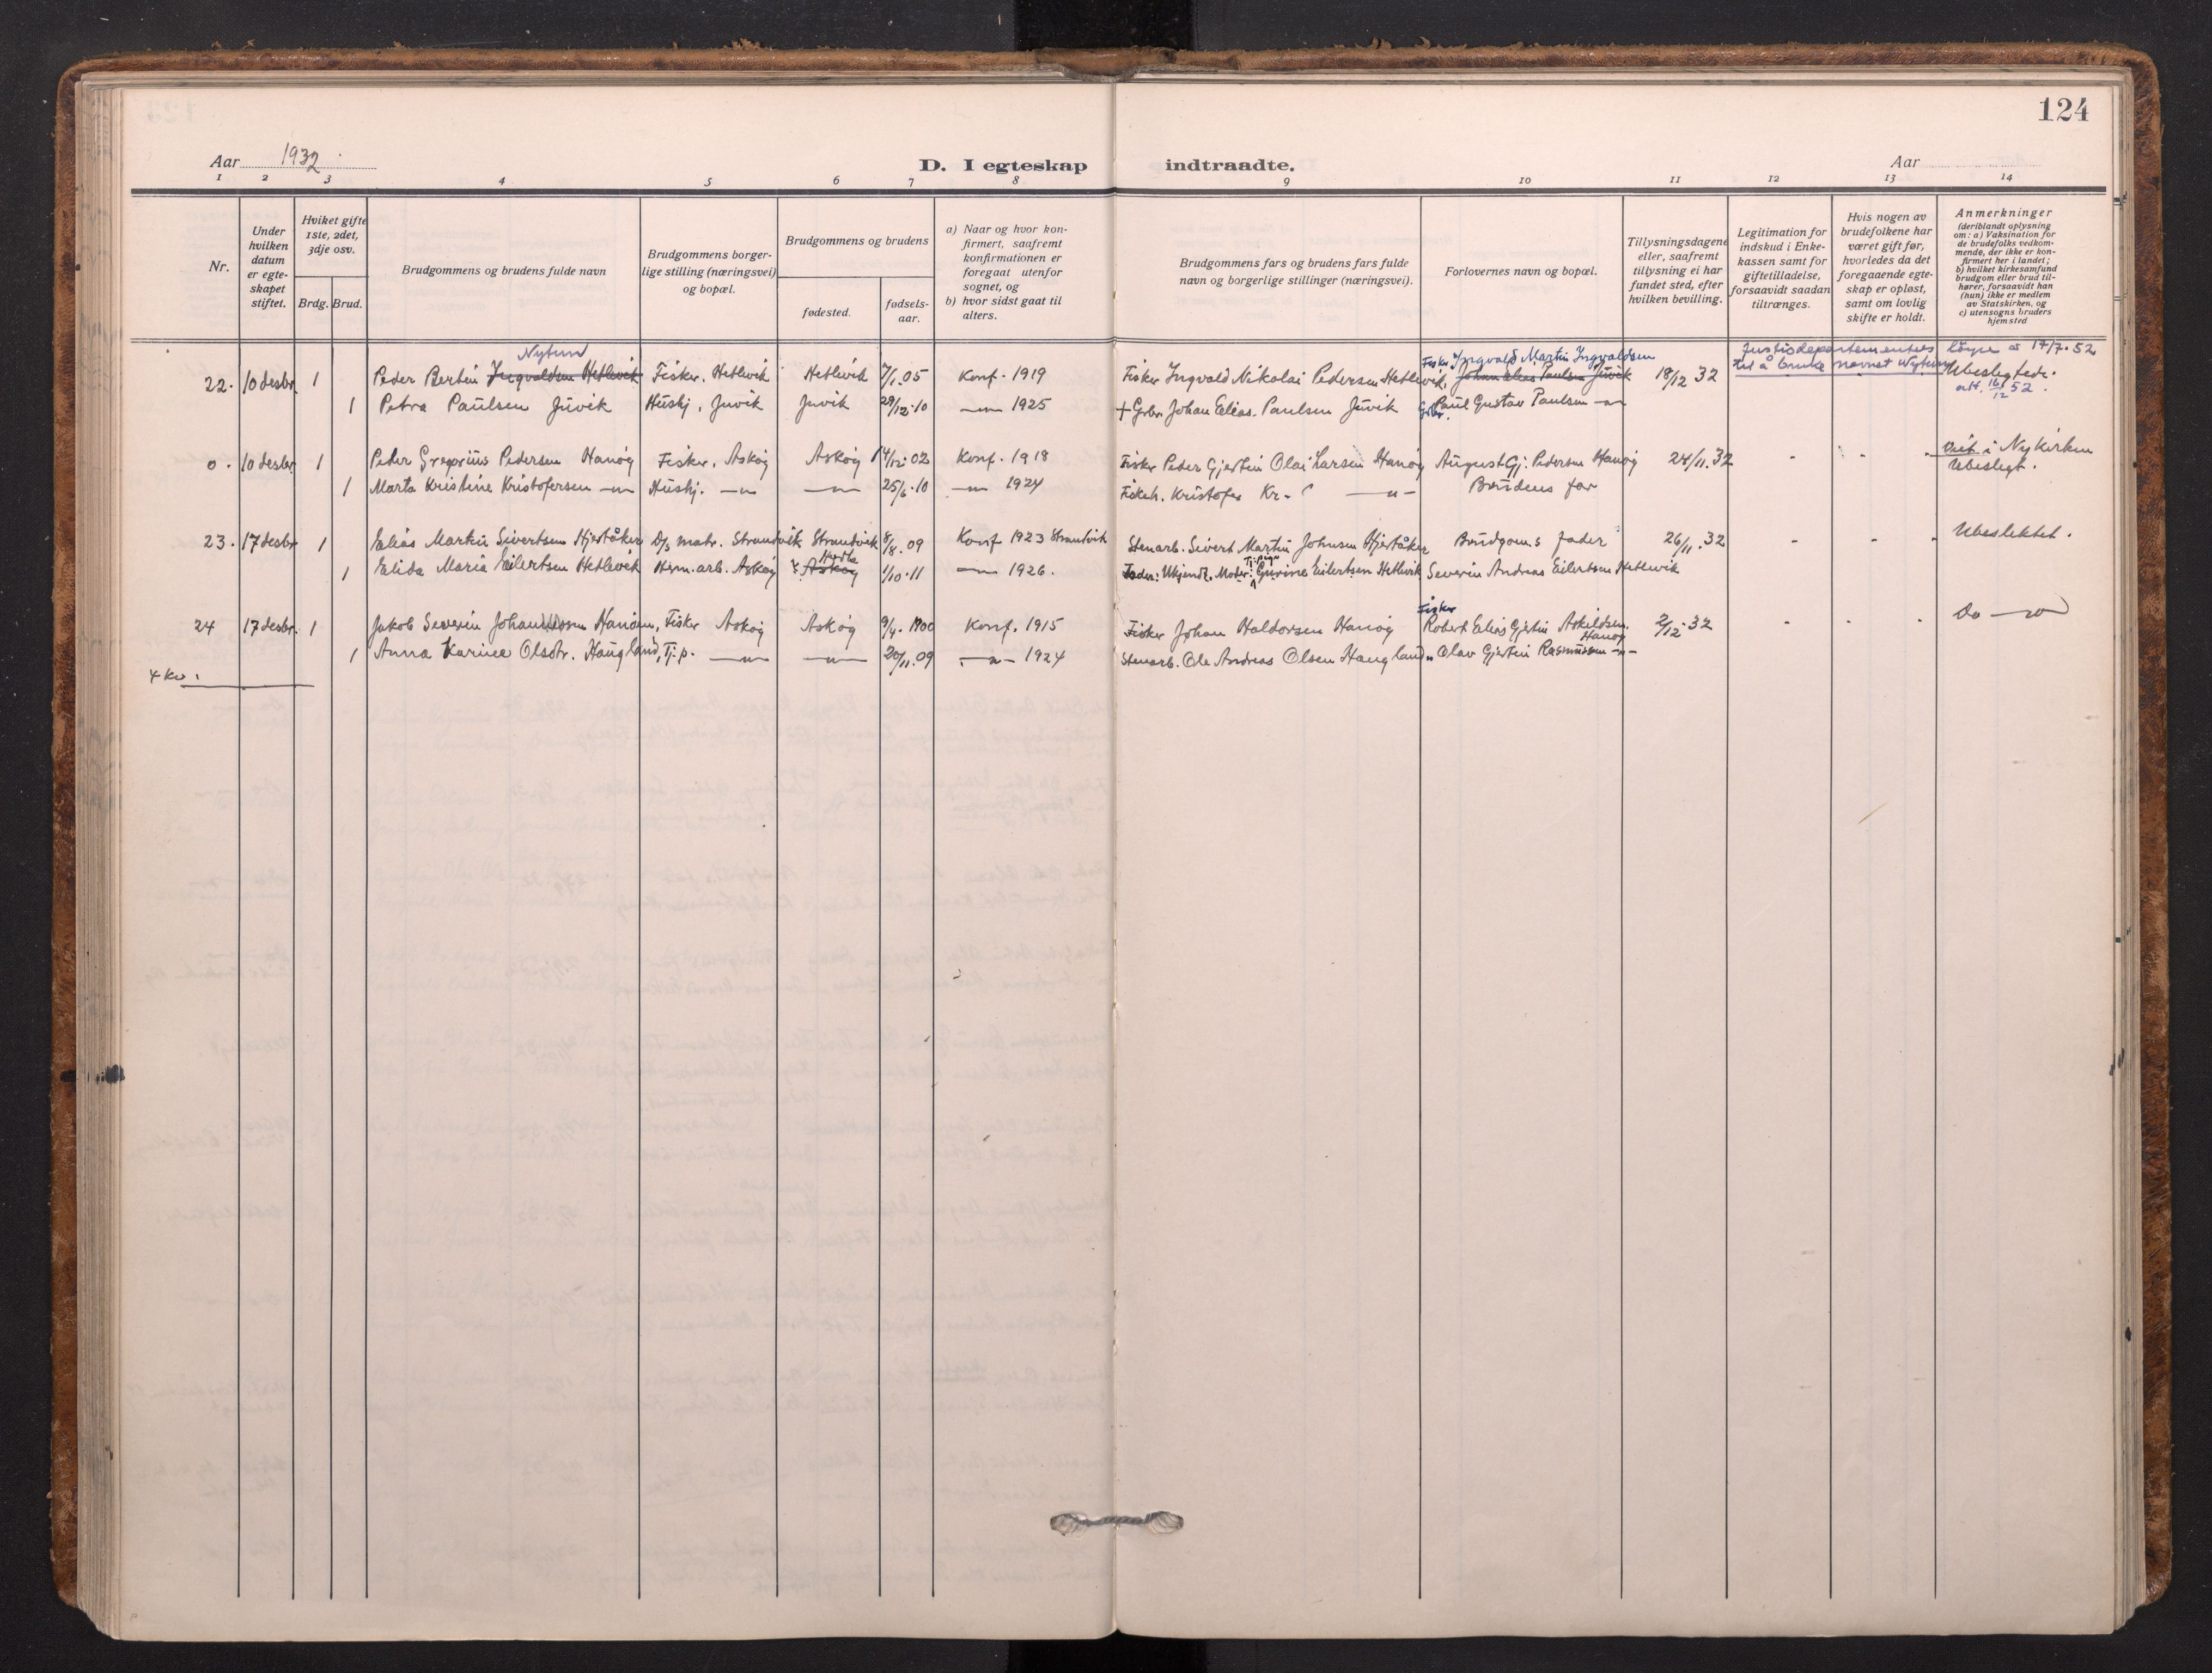 124
Aar 1932
D. I egteskap indtraadte.
Aar
1 2 3 4 5 6 7 8 9 10 11 12 13 14
Nr.
Under hvilken datum er egteskapet stiftet.
Hviket gifte 1ste, 2det, 3dje osv.
Brdg. Brud.
Brudgommens og brudens fulde navn
Brudgommens borgerlige stilling (næringsvei) og bopæl.
Brudgommens og brudens
fødested.
fødselsaar.
a) Naar og hvor konfirmert, saafremt konfirmationen er foregaat utenfor sognet, og
b) hvor sidst gaat til alters.
Brudgommens fars og brudens fars fulde navn og borgerlige stillinger (næringsvei).
Forlovernes navn og bopæl.
Tillysningsdagene eller, saafremt tillysning ei har fundet sted, efter hvilken bevilling.
Legitimation for indskud i Enkekassen samt for giftetilladelse, forsaavidt saadan tiltrænges.
Hvis nogen av brudefolkene har været gift før, hvorledes da det foregaaende egteskap er opløst, samt om lovlig skifte er holdt.
Anmerkninger (deriblandt oplysning om: a) Vaksination for de brudefolks vedkommende, der ikke er konfirmert her i landet; b) hvilket kirkesamfund brudgom eller brud tilhører, forsaavidt han (hun) ikke er medlem av Statskirken, og c) utensogns bruders hjemsted
Nytun
Fisker Ingvald Martin Ingvaldsen
Justisdepartementets løyve av 17/7-52
til å bruke navnet Nytun
22. 10 desbr. 1 Peder Bertin Ingvaldsen Hetlevik Fisker. Hetlevik Hetlevik 7/1.05 Konf. 1919 Fisker Ingvald Nikolai Pedersen Hetlevik, Johan Elias Paulsen Juvik 18/12 32 Ubeslegtede.
att. 16/12 52.
1 Petra Paulsen Juvik Hushj. Juvik Juvik 29/12.10 —"— 1925 + Grbr. Johan Elias. Paulsen Juvik Grbr. Paul Gustav Paulsen —"—
0. 10 desbr. 1 Peder Gregorius Pedersen Hanøy Fisker. Askøy Askøy 14/12.02 Konf. 1918 Fisker Peder Gjertin Olai Larsen Hanøy August Gj. Pedersen Hanøy 24/11.32 - - - Viet i Nykirken
Ubeslegt.
1 Marta Kristine Kristofersen —"— Hushj. —"— —"— 25/6.10 —"— 1924 Fiskeh. Kristofer Kr. —"— Brudens far
23. 17 desbr. 1 Elias Martin Sivertsen Hjertåker D/s matr. Strandvik Strandvik 8/8.09 Konf 1923 Strandvik Stenarb. Sivert Martin Johnsen Hjertåker Brudgom.s fader 26/11.32 - - - Ubeslektet.
1 Elida Maria Eilertsen Hetlevik Herm.arb. Askøy Askøy 1/10.11 —"— 1926. Fader: Ukjendt. Moder: Gurine Eilertsen Hetlevik Severin Andreas Eilertsen Hetlevik
Fisker
24 17 desbr. 1 Jakob Severin Johannssen Hanøen, Fisker Askøy Askøy 9/4.1900 Konf. 1915 Fisker Johan Haldorsen Hanøy Robert Elias Gjertin Askildsen. Hanøy 2/12.32 - - - Do —"—
1 Anna Karine Olsdtr. Haugland, Tj.p. —"— —"— 20/11.09 —"— 1924 Stenarb. Ole Andreas Olsen Haugland. Olav Gjertin Rasmussen —"—